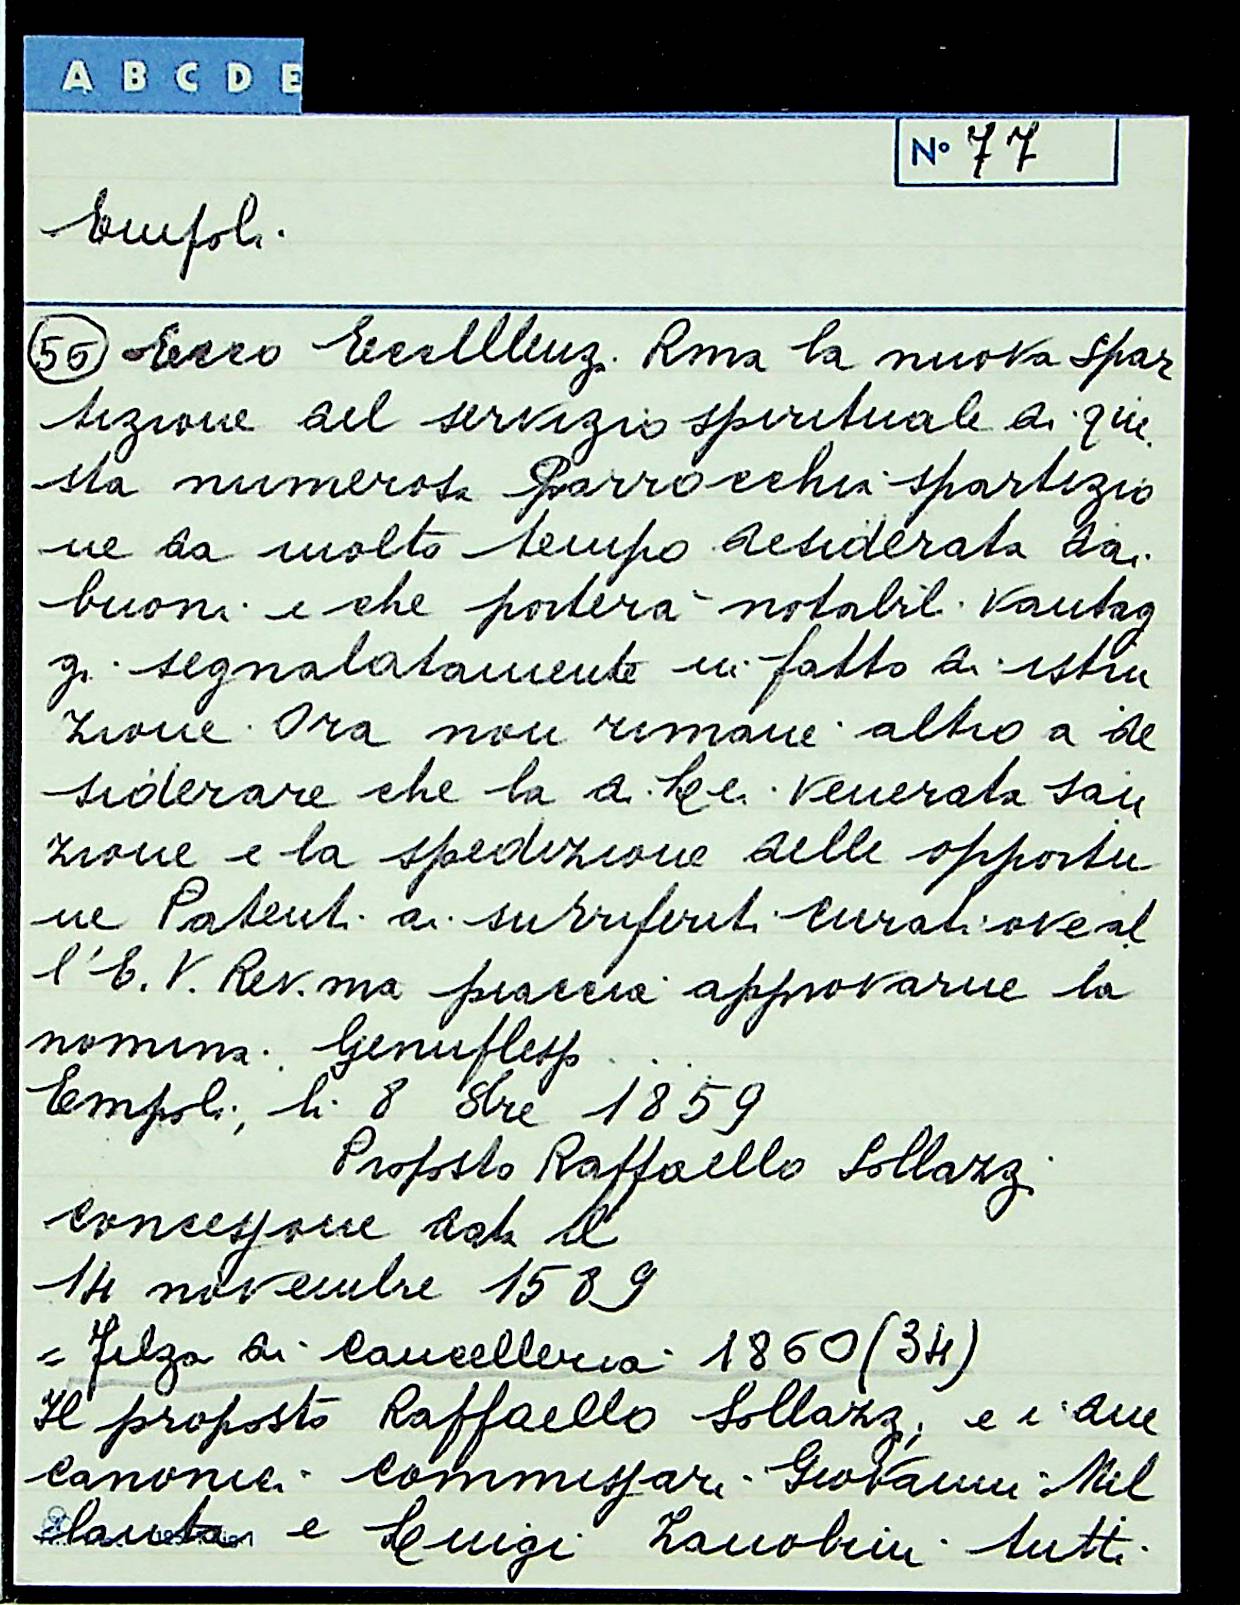 A B C D E
N° 77
Empoli.
56 Ecco Eccellenz. Rma la nuova spar
tizione del servizio spirituale di que
sta numerosa Parrocchia spartizio
ne da molto tempo desiderata dai
buoni e che porterà notabili vantag
gi segnalatamente in fatto di istru
zione. Ora non rimane altro a de
siderare che la di Lei venerata san
zione e la spedizione delle opportu
ne Patenti ai surriferiti curati ove al
l'E. V. Rev.ma piaccia approvarne la
nomina. Genufless . . .
Empoli, li 8 8bre 1859
Proposto Raffaello Sollazzi
concessione data il
14 novembre 1589
= Filza di Cancelleria 1860 (34)
Il proposto Raffaello Sollazzi e i due
canonici commissari Giovanni Mil
lanta e Luigi Zanobini tutti